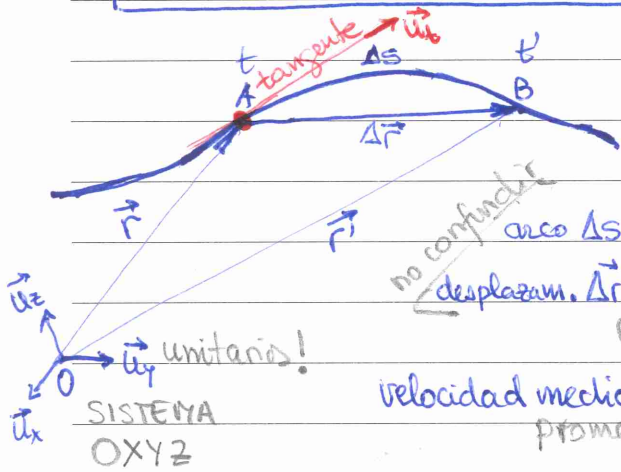 u⃗t
tangente
t
Δs
t'
A
B
Δr⃗
r⃗
r⃗'
no confundir
arco Δs
desplazam. Δr⃗
u⃗z
u⃗y unitarios!
O
u⃗x
SISTEMA
OXYZ
velocidad media
prome